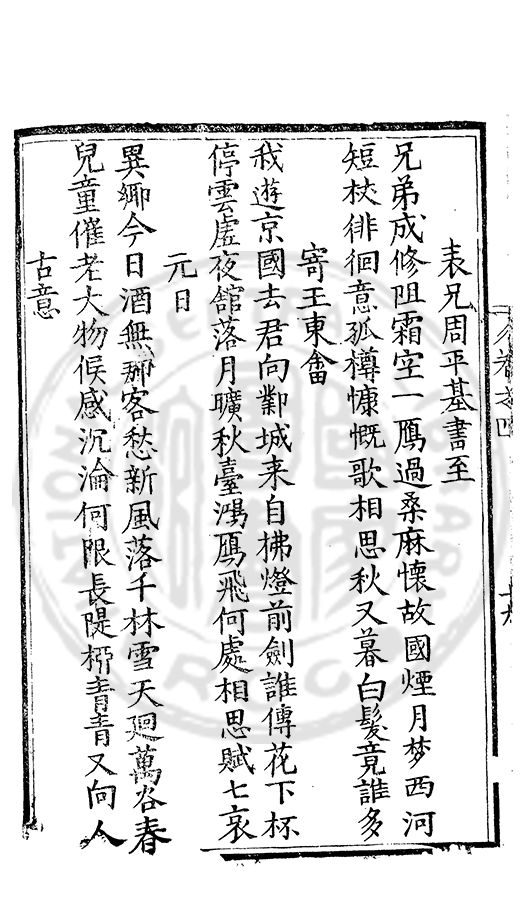 表兄周平基書至
兄弟成修阻霜空一鴈過桑麻懷故國煙月梦西河
短校徘徊意孤樽慷慨歌相思秋又暮白髪竟誰多
寄王東畬
我遊京國去君向鄴城来自拂燈前劍誰傳花下杯
停雲虗夜舘落月曠秋臺鴻鴈飛何處相思賦七哀
元日
異鄉今日酒無那客愁新風落千林雪天廻萬谷春
兒童催老大物候感沉淪何限長隄栁青青又向人
古意